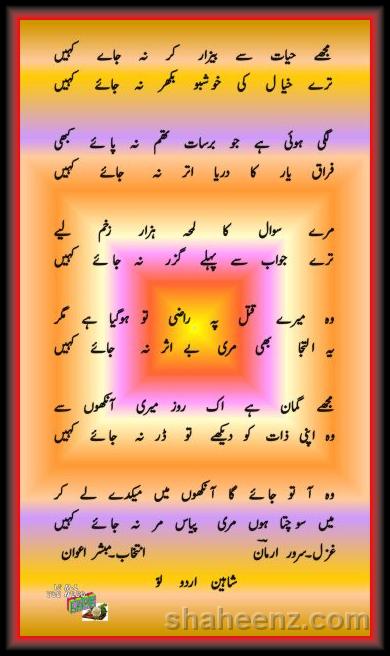 مجھے حیات سے بیزار کر نہ جاے کہیں
ترے خیال کی خوشبو بکھر نہ جائے کہیں
لگی ہوئی ہے جو برسات تھم نہ پائے کبھی
فراق یار کا دریا اتر نہ جائے کہیں
مرے سوال کا لمحہ ہزار زخم لیے
ترے جواب سے پہلے گزر نہ جائے کہیں
وہ میرے قتل پہ راضی تو ہوگیا ہے مگر
یہ التجا بھی مری بے اثر نہ جائے کہیں
مجھے گمان ہے اک روز میری آنکھوں سے
وہ اپنی ذات کو دیکھے تو ڈر نہ جائے کہیں
وہ آ تو جائے گا آنکھوں میں میکدے لے کر
میں سوچتا ہوں مری پیاس مر نہ جائے کہیں
غزل۔سرور ارمان انتخاب۔مبشر اعوان
شاہین اردو لوَ
shaheenz.com